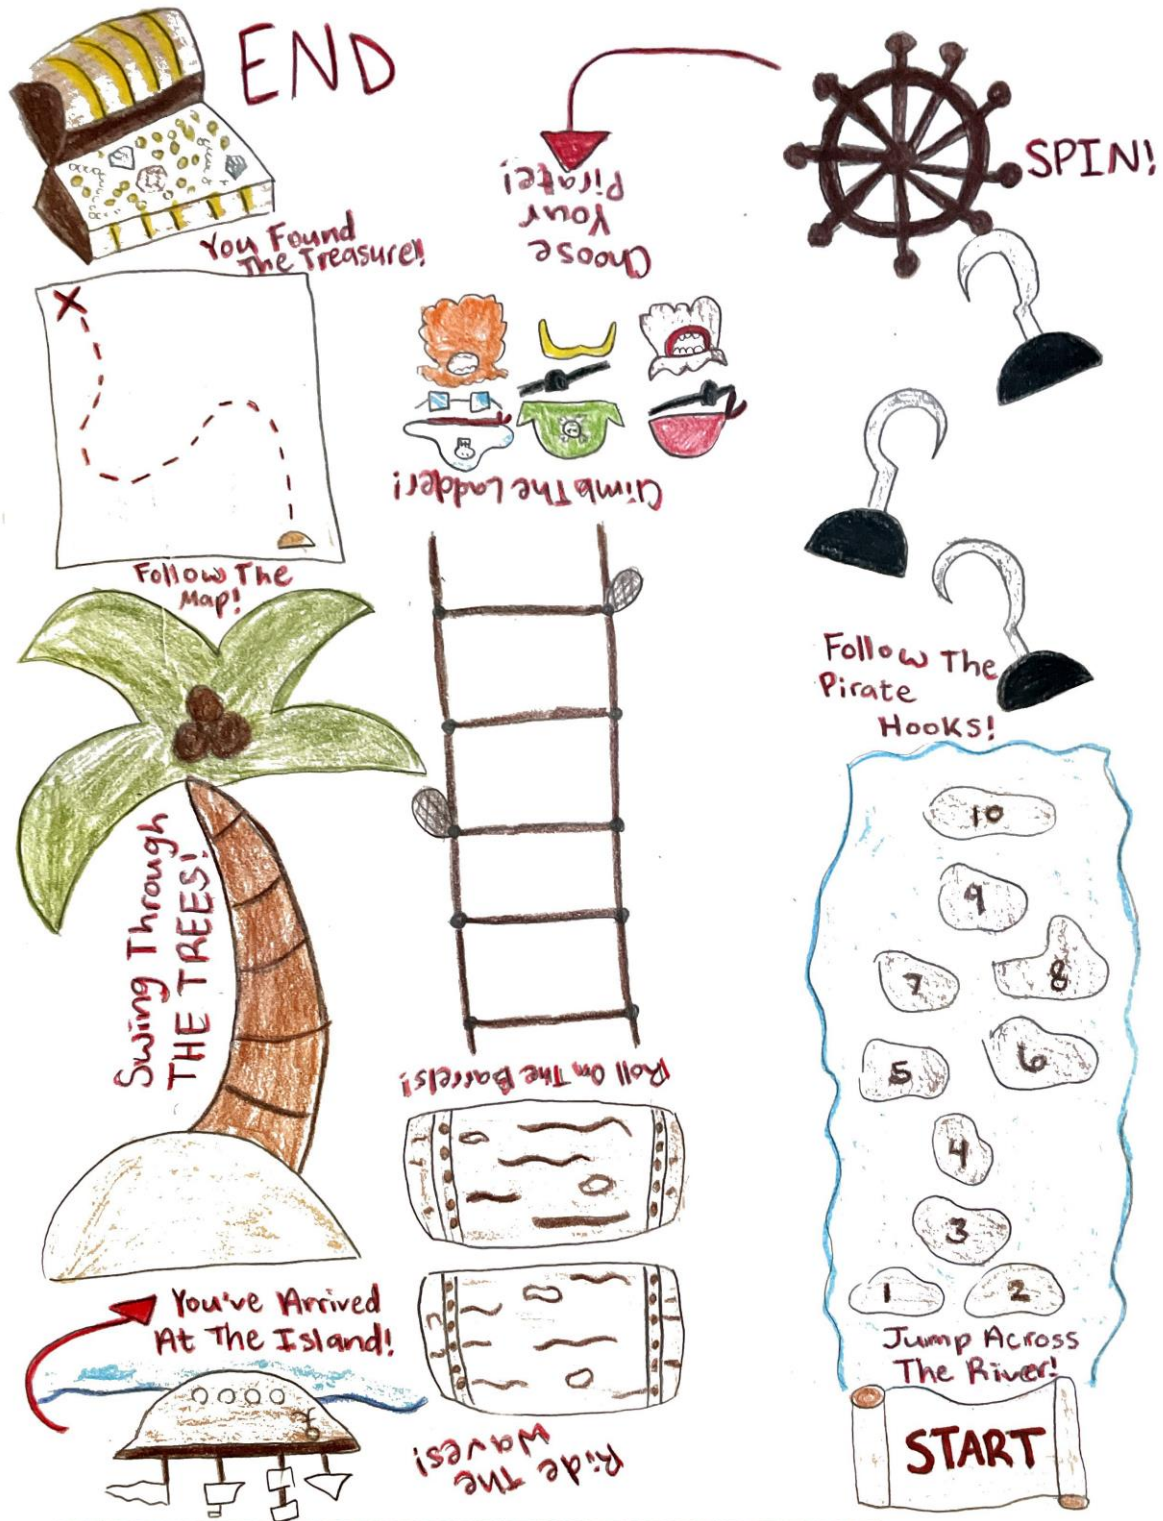 START
Jump Across
The River!
1
2
3
4
5
6
7
8
9
10
Follow The
Pirate
Hooks!
SPIN!
Choose
Your
Pirate!
Climb The Ladder!
Roll On The Barrels!
Ride The
Waves!
You've Arrived
At The Island!
Swing Through
THE TREES!
Follow The
Map!
X
You Found
The Treasure!
END